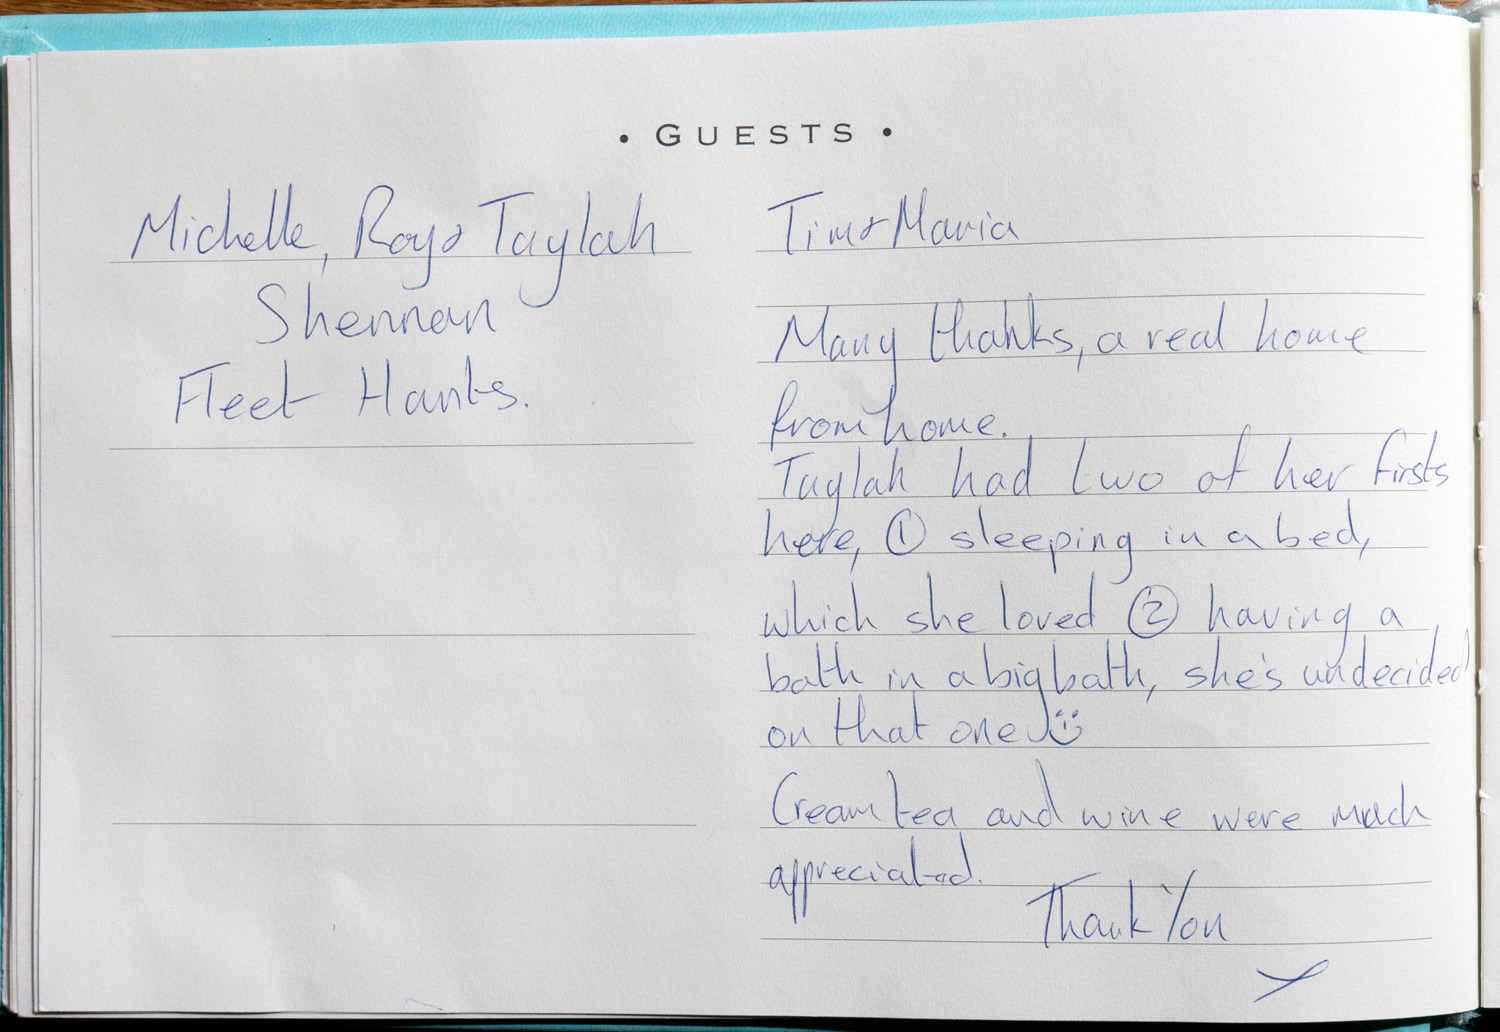 • GUESTS •
Michelle, Roy & Taylah
Shennan
Fleet Hants.
Tim & Maria
Many thanks, a real home
from home.
Taylah had two of her firsts
here, ① sleeping in a bed,
which she loved ② having a
bath in a big bath, she's undecided
on that one
Cream tea and wine were much
appreciated.
Thank You
x